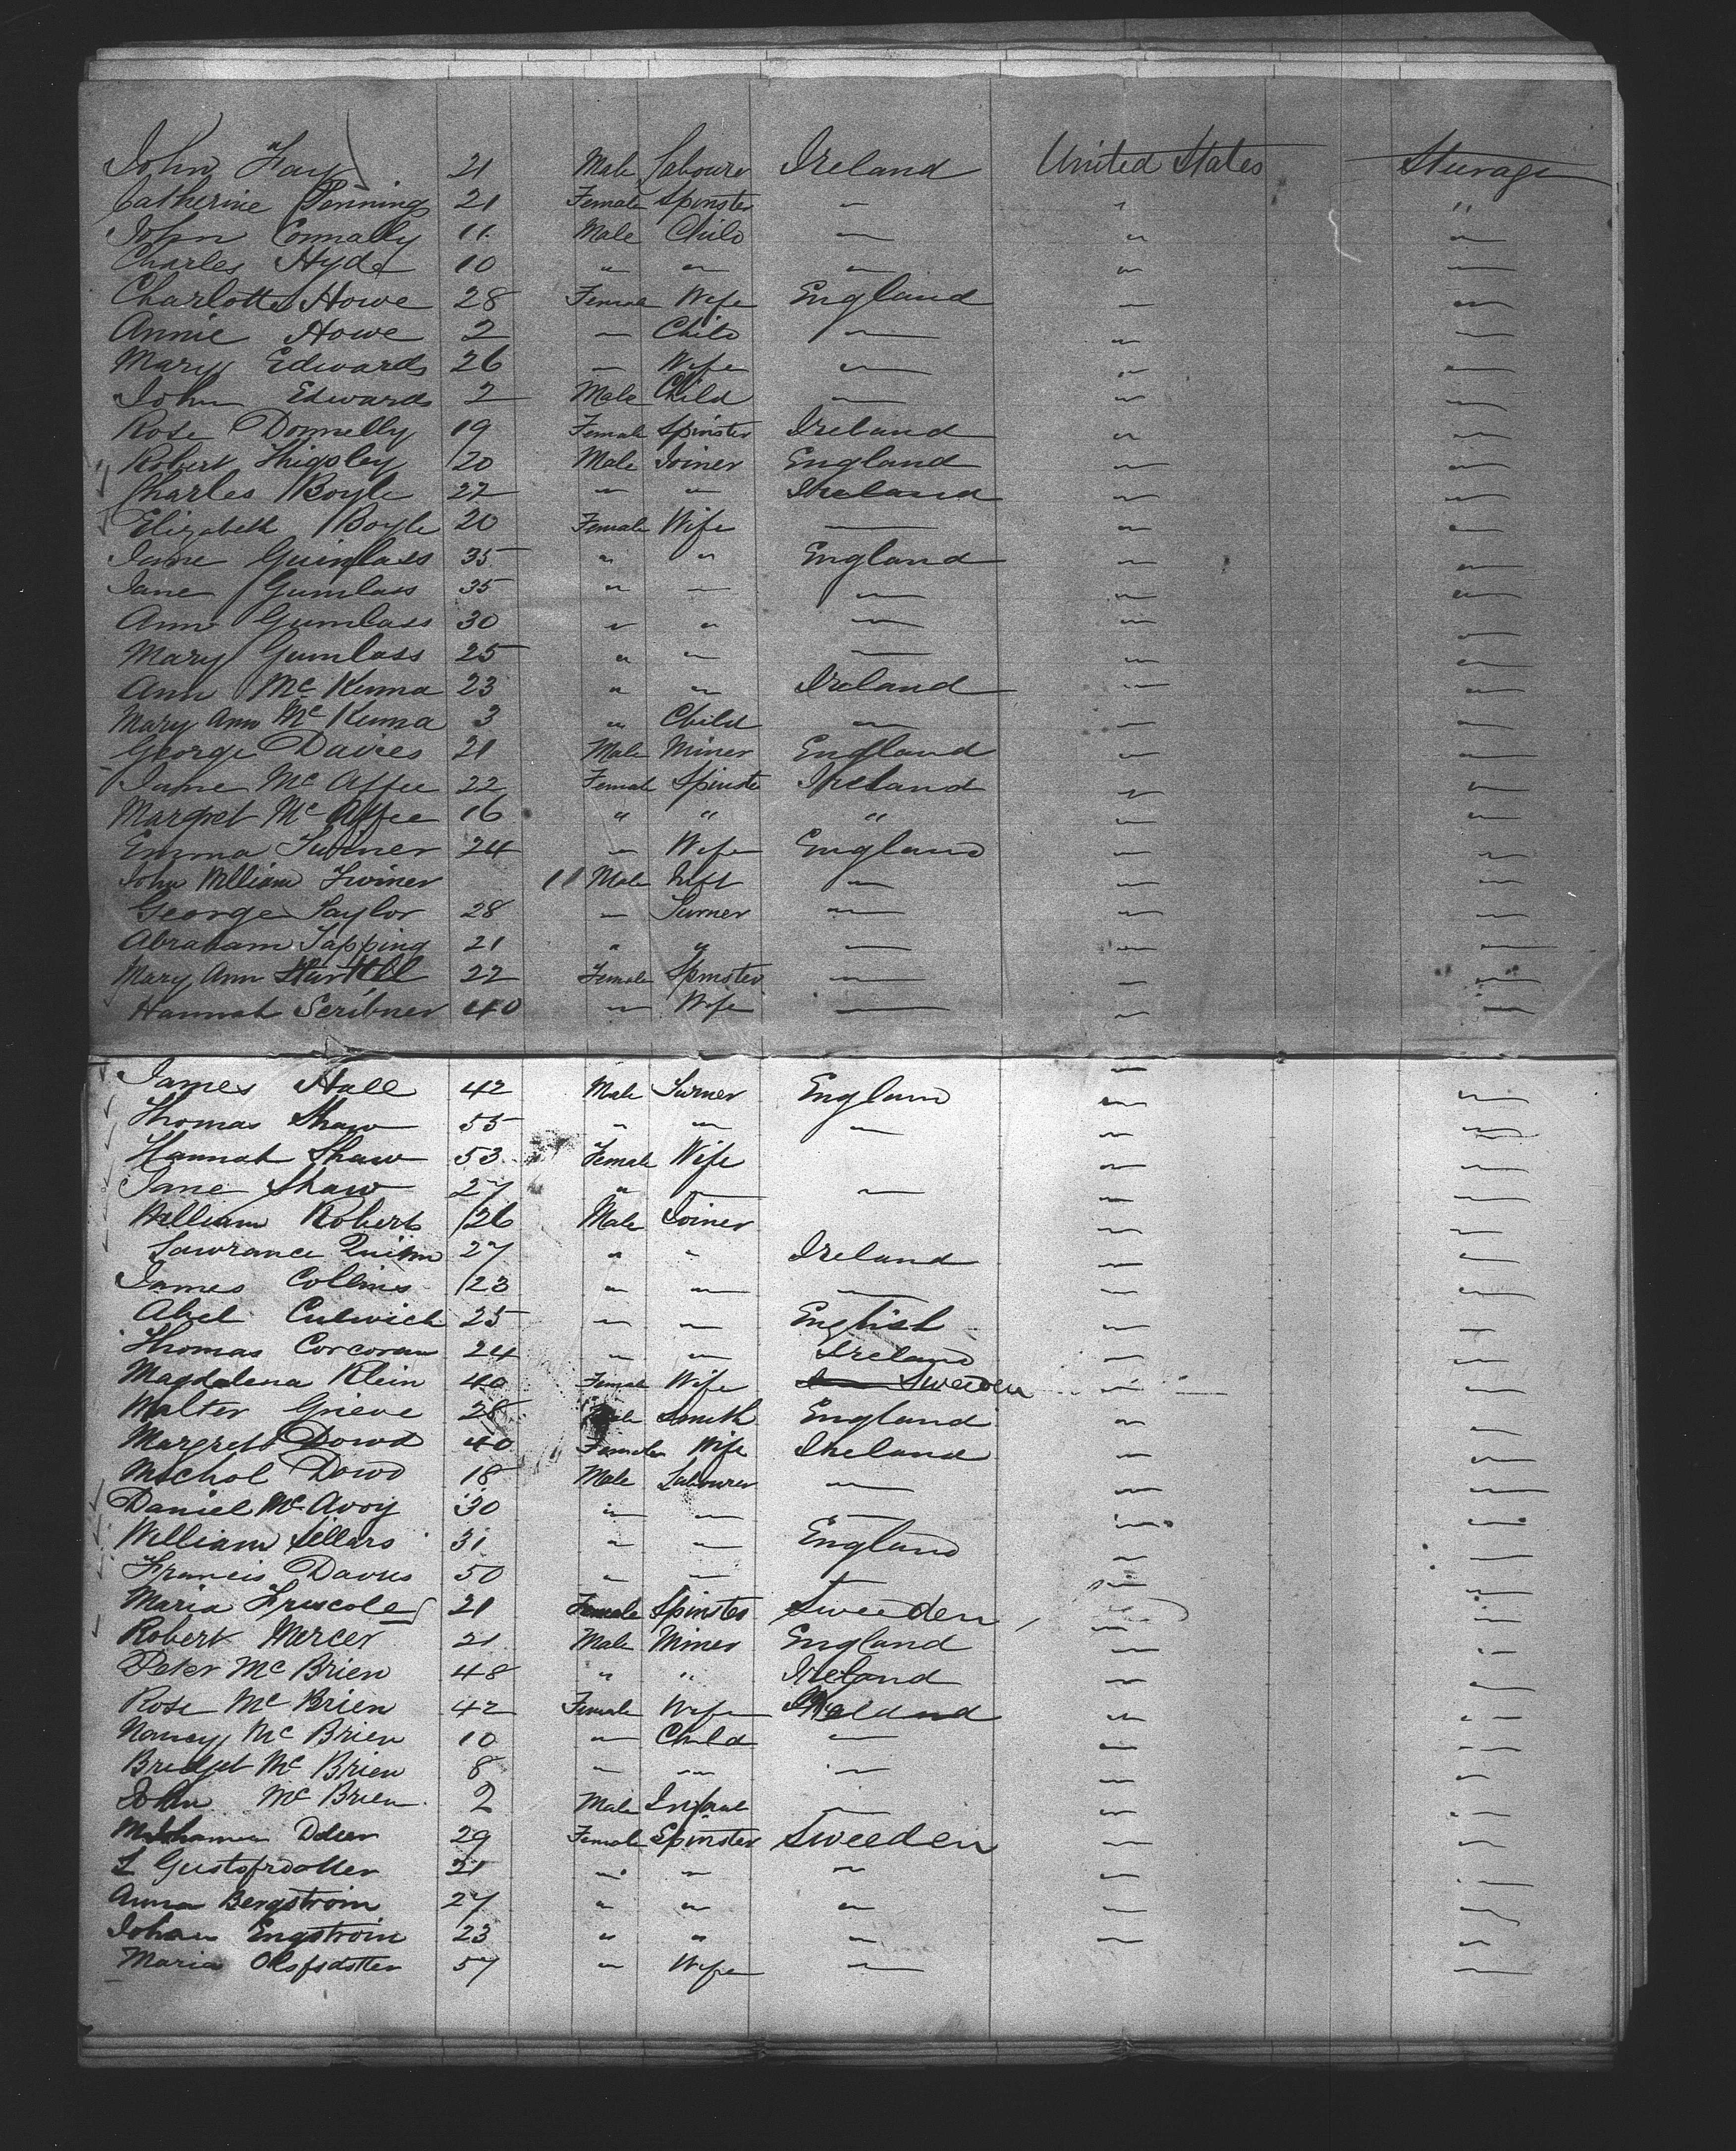 John Fay 21 Male Labourer Ireland United States Sturage
Catherine Penning 21 Female Spinster — " "
John Connally 11 Male Child — " "
Charles Hyde 10 " " — " —
Charlotte Howe 28 Female Wife England — "
Annie Howe 2 — Child — " —
Mary Edwards 26 — Wife — " —
John Edwards 2 Male Child — " —
Rose Donnelly 19 Female Spinster Ireland " —
Robert 20 Male Joiner England — —
Charles Boyle 22 " " Ireland — —
Elizabeth Boyle 20 Female Wife — " —
Jane 35 " " England — —
Jane Gumlass 35 " — — — —
Ann Gumlass 30 " " — — —
Mary Gumlass 25 " — — — —
Ann McKenna 23 " " Ireland — —
Mary Ann McKenna 3 " Child — — —
George Davies 21 Male Miner England — —
Jane McAffee 22 Female Spinster Ireland — —
Margret McAffee 16 " " " — —
Emma 24 — Wife England — —
John William 11 Male Inft — — —
George Taylor 28 — Turner — — —
Abraham Tapping 21 " " — — —
Mary Ann 22 Female Spinster — — —
Hannah Scribner 40 — Wife — — —
James Hall 42 Male Turner England — —
Thomas Shaw 55 " — — — —
Hannah Shaw 53 Female Wife — —
Jane Shaw 27 " — — — —
William Roberts 26 Male Joiner — —
Lawrance Quinn 27 " " Ireland — —
James Collins 23 " — — — —
Abel Culwick 25 — — English — —
Thomas Corcoran 24 — — Ireland — —
Magdalena Klein 40 Female Wife Sweeden — —
Walter Grieve 28 Male Smith England — —
Margrett Dowd 40 Female Wife Ireland — —
Michol Dowd 18 Male Labourer — — —
Daniel McAvoy 30 — — — — —
William Sillars 31 " — England — —
Francis Davies 50 " — — — —
Maria 21 Female Spinster Sweeden — —
Robert Mercer 21 Male Miner England — —
Peter McBrien 48 " " Ireland — —
Rose McBrien 42 Female Wife Ireland — —
Nancy McBrien 10 — Child — — —
Bridget McBrien 8 — — — — —
John McBrien 2 Male Infant — — —
29 Female Spinster Sweeden — —
L Gustofrdotter 21 — — — — —
Anna Bergstrom 27 " " — — —
Johan Engstrom 23 " " — — —
Maria Olofsdotter 57 " Wife — —